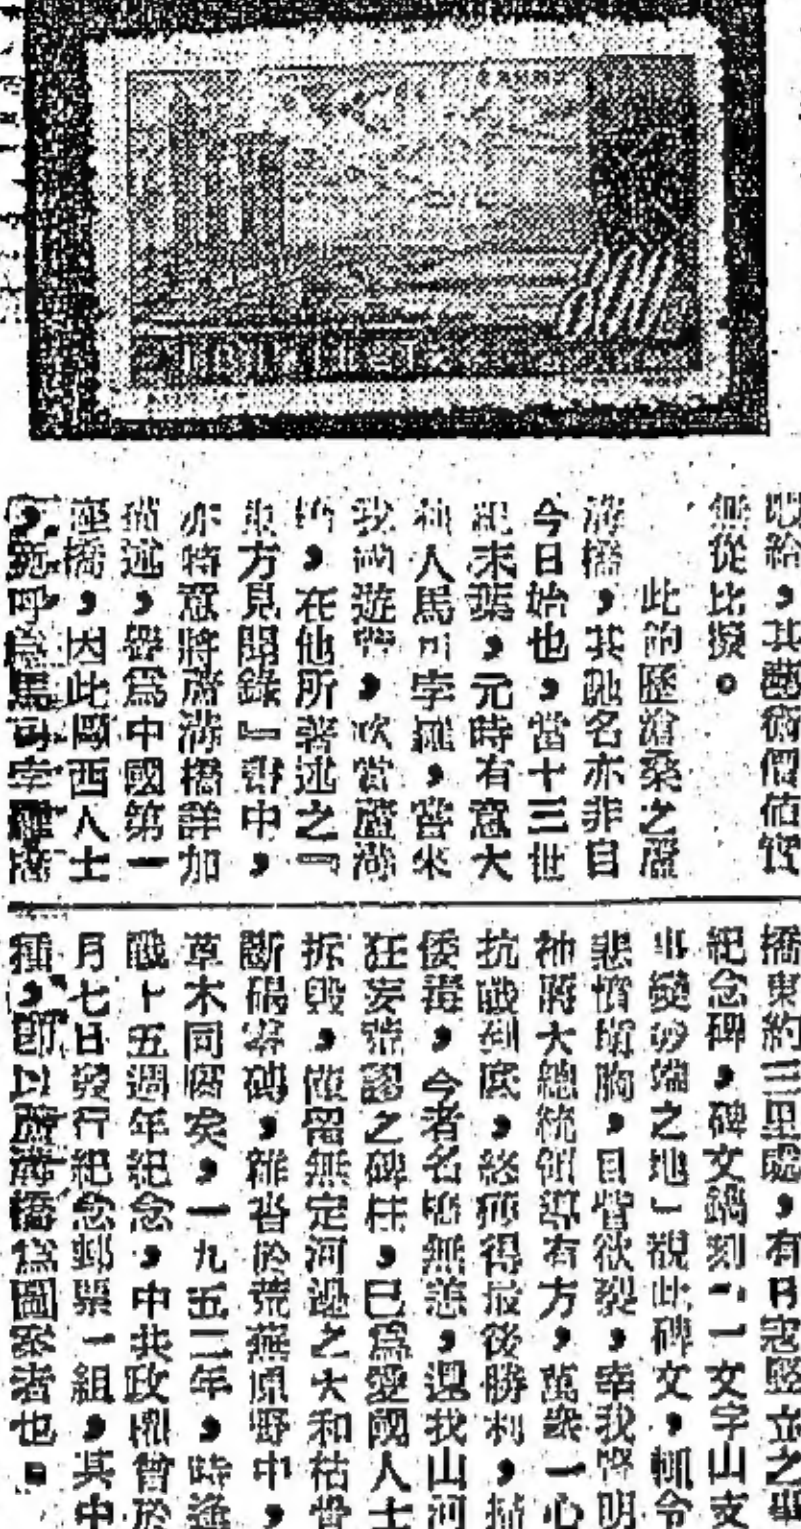 其藝術價值實
無從比擬。
此飽歷滄桑之蘆
溝橋，其馳名亦非自
今日始也，當十三世
紀末葉，元時有意大
利人馬可孛羅，嘗來
我國遊，蘆溝
，在他所著述之『
東方見聞錄』書中，
亦特意將蘆溝橋詳加
描述，譽爲中國第一
座橋，因此歐西人士
，呼爲馬可孛羅
橋東約三里處，有日寇豎立之
紀念碑，碑文鐫刻「一文字山支
事變發端之地」覩此碑文，輒令
悲憤塡胸，目眥欲裂，幸我
神蔣大總統領導有方，萬衆一心
抗戰到底，終獲得最後勝利，
倭毒，今者名橋無恙，還我山河
狂妄之碑柱，已爲愛國人士
拆毀，留無定河邊之大和枯骨
斷碣零磚，雜沓於荒蕪原野中，
草木同腐矣，一九五二年，時逢
戰十五週年紀念，中共政權曾於
月七日發行紀念郵票一組，其中
種，即以蘆溝橋爲圖案者也。